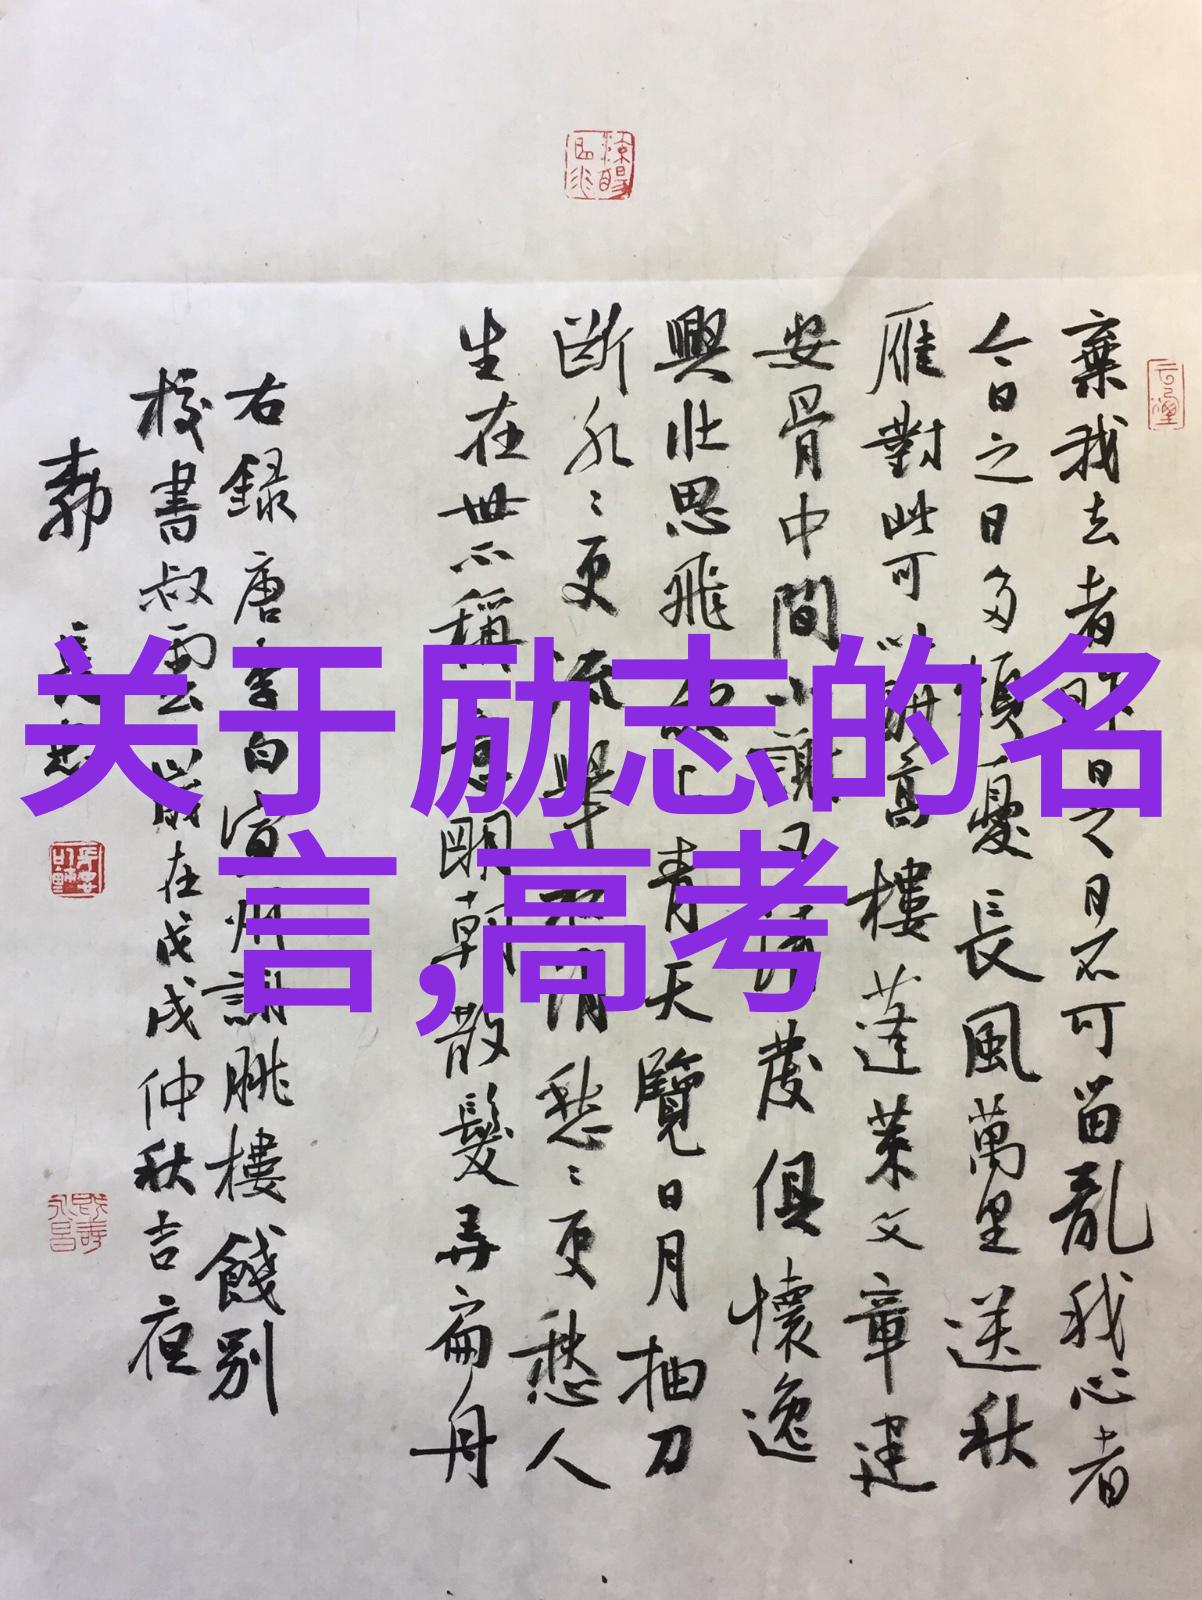 关于励志的名
言,高考
棄我去者昨日之日不可留亂我心者
今日之日多煩憂長風萬里送秋
雁對此可以酣高樓蓬萊文章建
安骨中間小謝又清發俱懷逸
興壯思飛欲上青天覽日月抽刀
斷水〻更流舉杯消愁〻更愁人
生在世不稱意明朝散髮弄扁舟
右録唐李白宣州謝朓樓餞別
校書叔雲歲在戊戌仲秋吉夜